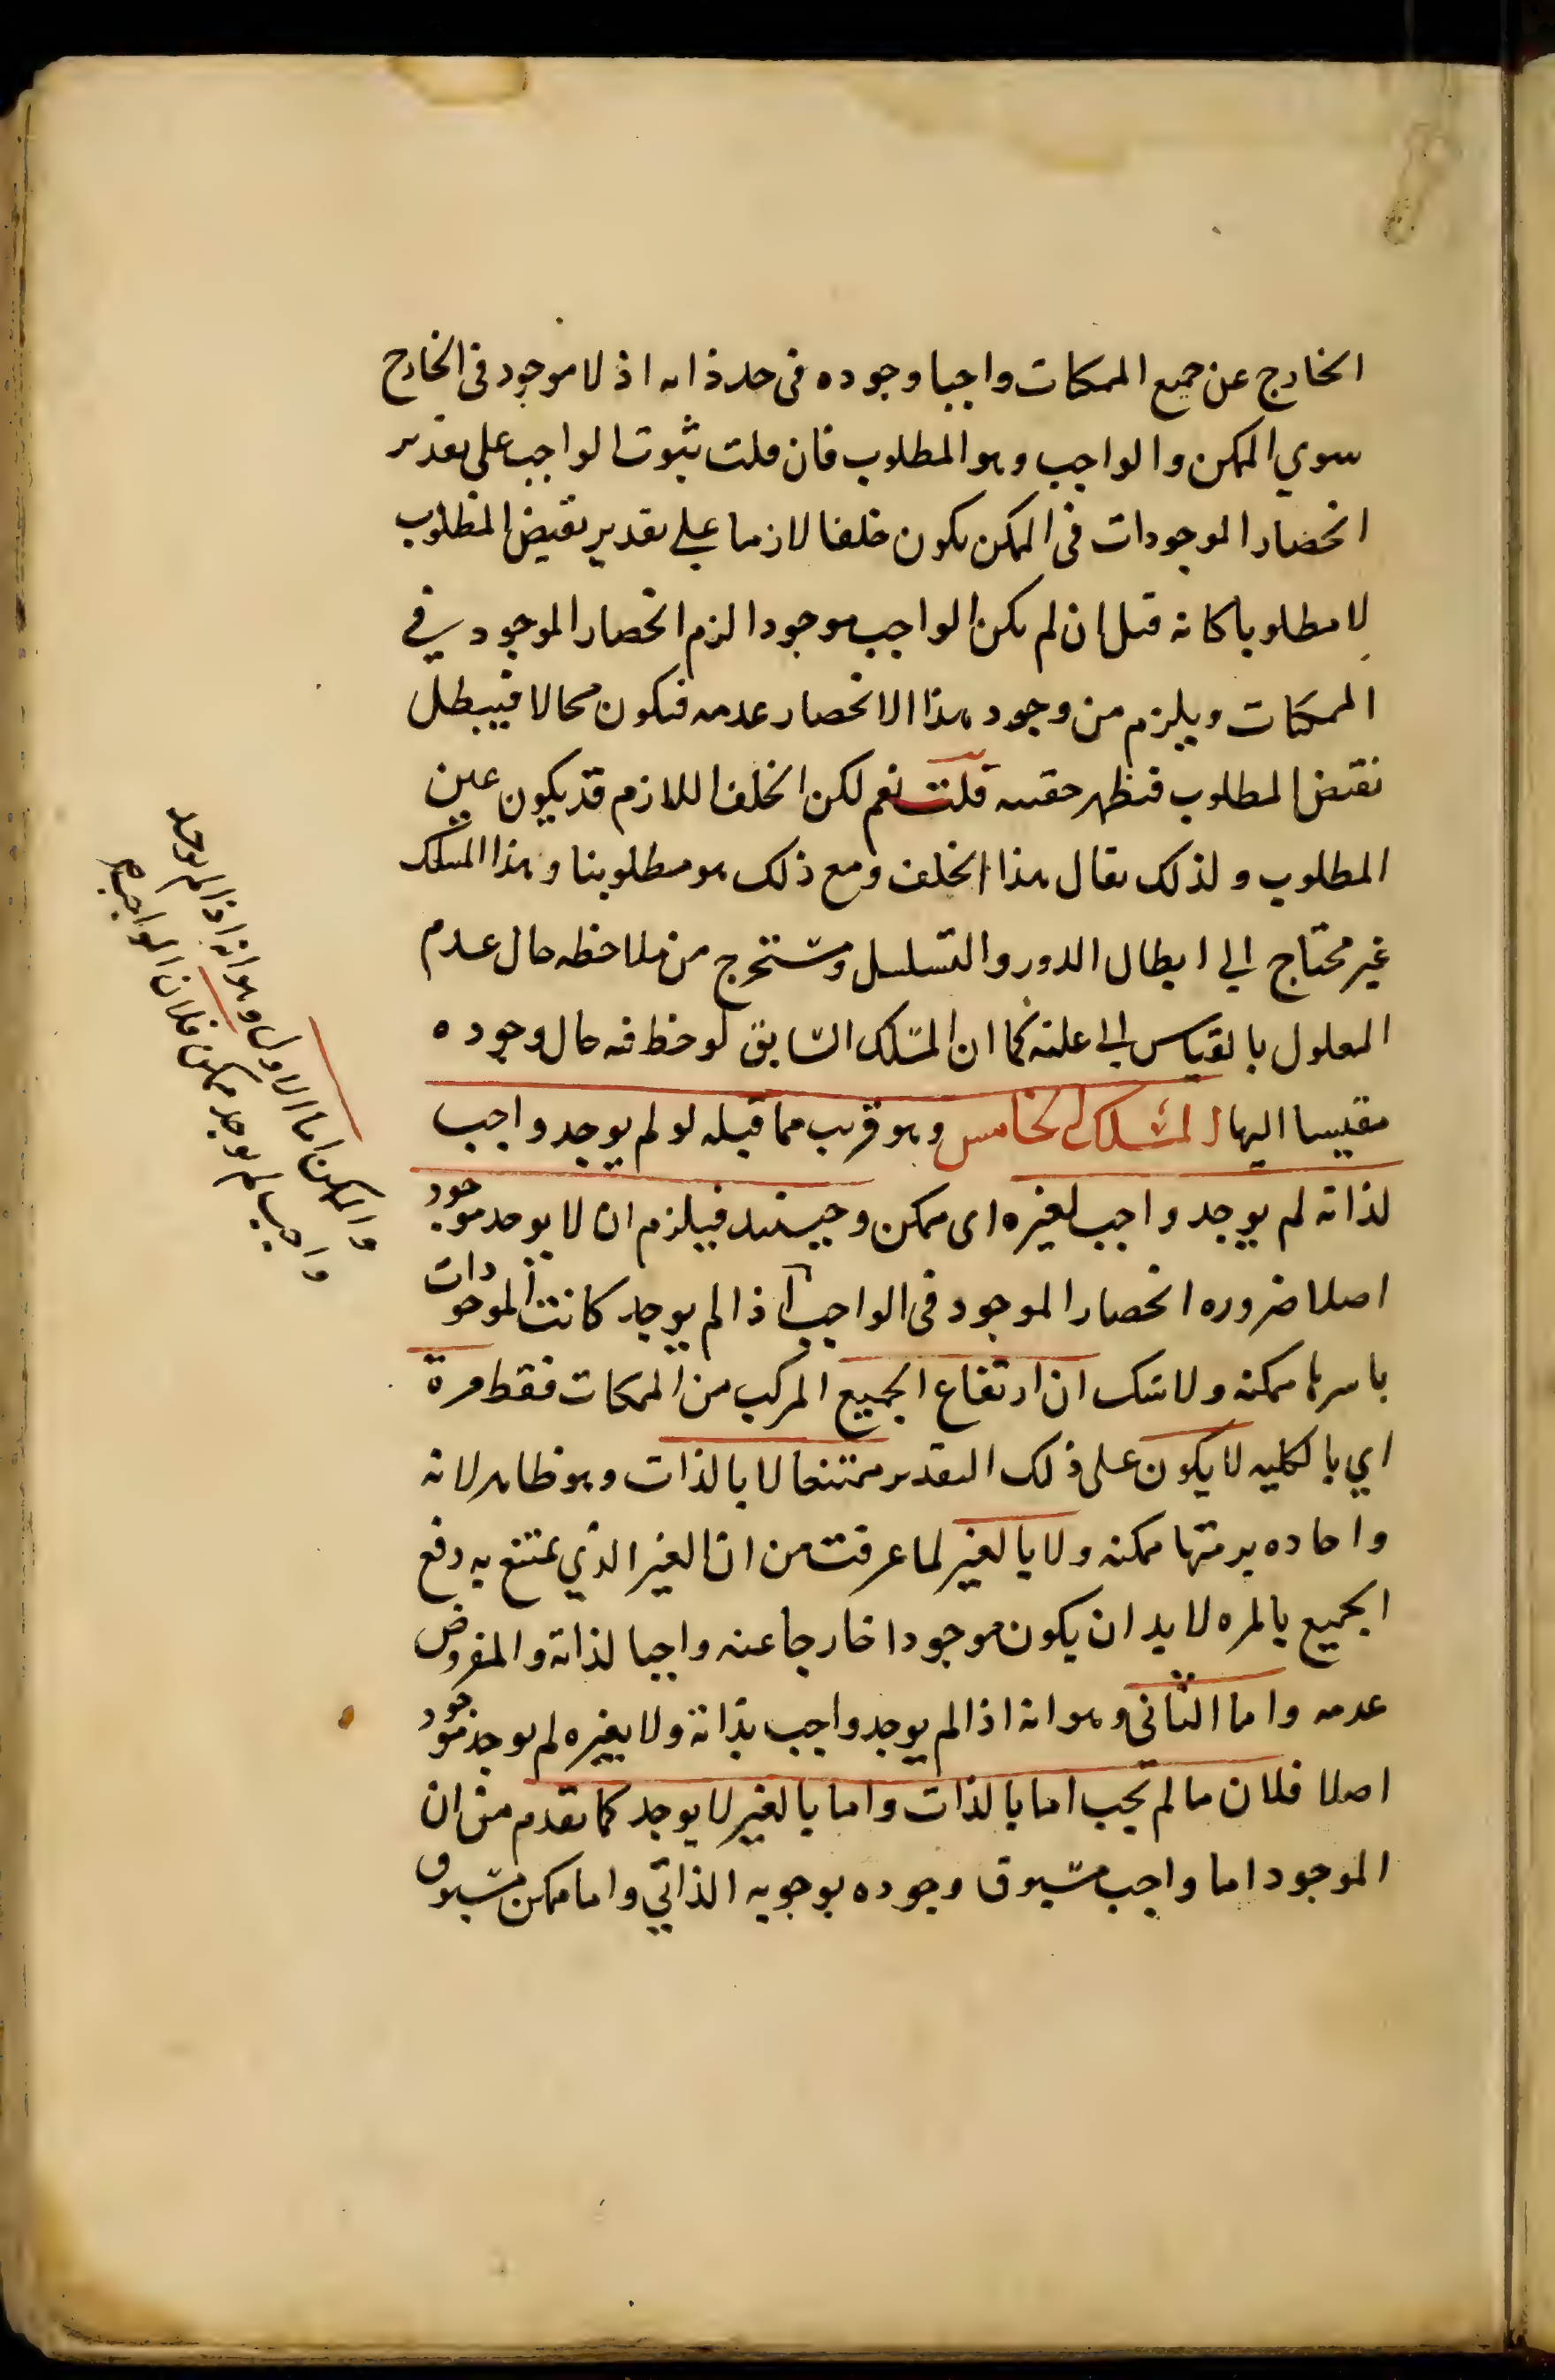 الخارج عن جميع الممكنات واجبا وجوده في حد ذاته اذ لا موجود في الخارج
سوي الممكن والواجب وهو المطلوب فان قلت ثبوت الواجب على تقدير
انحصار الموجودات في الممكن يكون خلفا لازما علي تقدير نقيض المطلوب
لا مطلوبا كانه قيل ان لم يكن الواجب موجودا لزم انحصار الموجود في
الممكنات ويلزم من وجود هذا الانحصار عدمه فيكون محالا فيبطل
نقيض المطلوب فتظهر حقيته قلت نعم لكن الخلف اللازم قد يكون عين
المطلوب ولذلك يقال هذا الخلف ومع ذلك هو مطلوبنا وهذا المسلك
غير محتاج الي ابطال الدور والتسلسل ومستخرج من ملاحظه حال عدم
المعلول بالقياس الي علته كما ان المسلك السابق لوحظ فيه حال وجوده
مقيسا اليها المسلك الخامس وهو قريب مما قبله لو لم يوجد واجب
لذاته لم يوجد واجب لغيره اى ممكن وحينئذ فيلزم ان لا يوجد موجود
اصلا ضروره انحصار الموجود في الواجب اذا لم يوجد كانت الموجودات
باسرها ممكنه ولا شك ان ارتفاع الجميع المركب من الممكنات فقط مرة
اي بالكليه لا يكون على ذلك التقدير ممتنعا لا بالذات وهو ظاهر لانه
واحاده برمتها ممكنه ولا بالغير لما عرفت من ان الغير الذي يمتنع به رفع
الجميع بالمره لا بد ان يكون موجودا خارجا عنه واجبا لذاته والمفروض
عدمه واما الثاني وهو انه اذا لم يوجد واجب بذاته ولا بغيره لم يوجد موجود
اصلا فلان ما لم يجب اما بالذات واما بالغير لا يوجد كما تقدم من ان
الموجود اما واجب مسبوق وجوده بوجوبه الذاتي واما ممكن مسبوق
والممكن اما الاول وهو انه اذا لم يوجد
واجب لم يوجد ممكن فلان الواجب